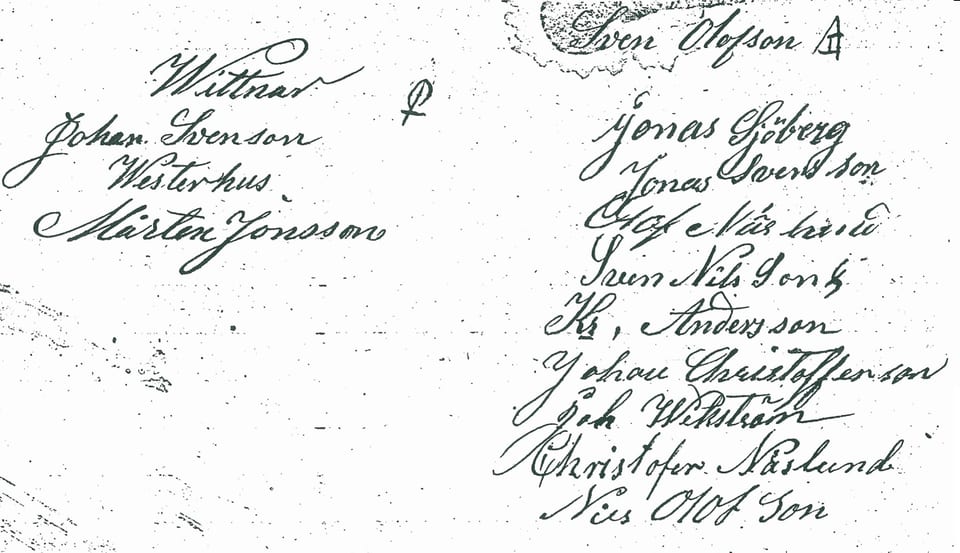 Wittnar
Johan Svenson
Westerhus
Mårten Jonsson
Sven Olofson
Jonas Sjöberg
Jonas Svensson
Olof Näslund
Sven Nils Son
Kr, Andersson
Johan Christoffenson
Joh Wikström
Christofer Näslund
Nils Olof Son